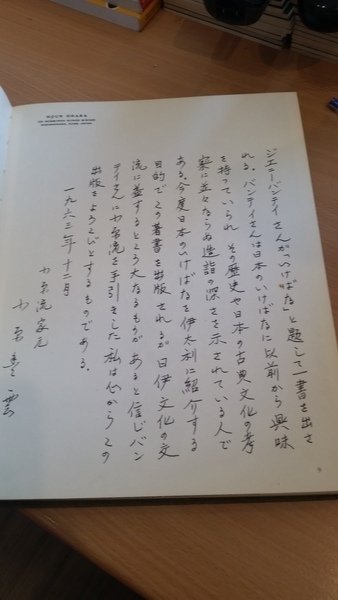 HOUN OHARA
ジエニーバンテイさんが「いけばな」と題して一書を出さ
れる。バンテイさんは日本のいけばなに以前から興味
を持っていられ その歴史や日本の古典文化の考
察に並々ならぬ造詣の深さを示されている人で
ある。今度日本のいけばなを伊太利に紹介する
目的でこの著書を出版されるが日伊文化の交
流に益するところ大なるものがあると信じバン
テイさんに小原流を手引きした私は心からこの
出版をよろこびとするものである。
一九六三年十二月
小原流家元
小原豊雲
9